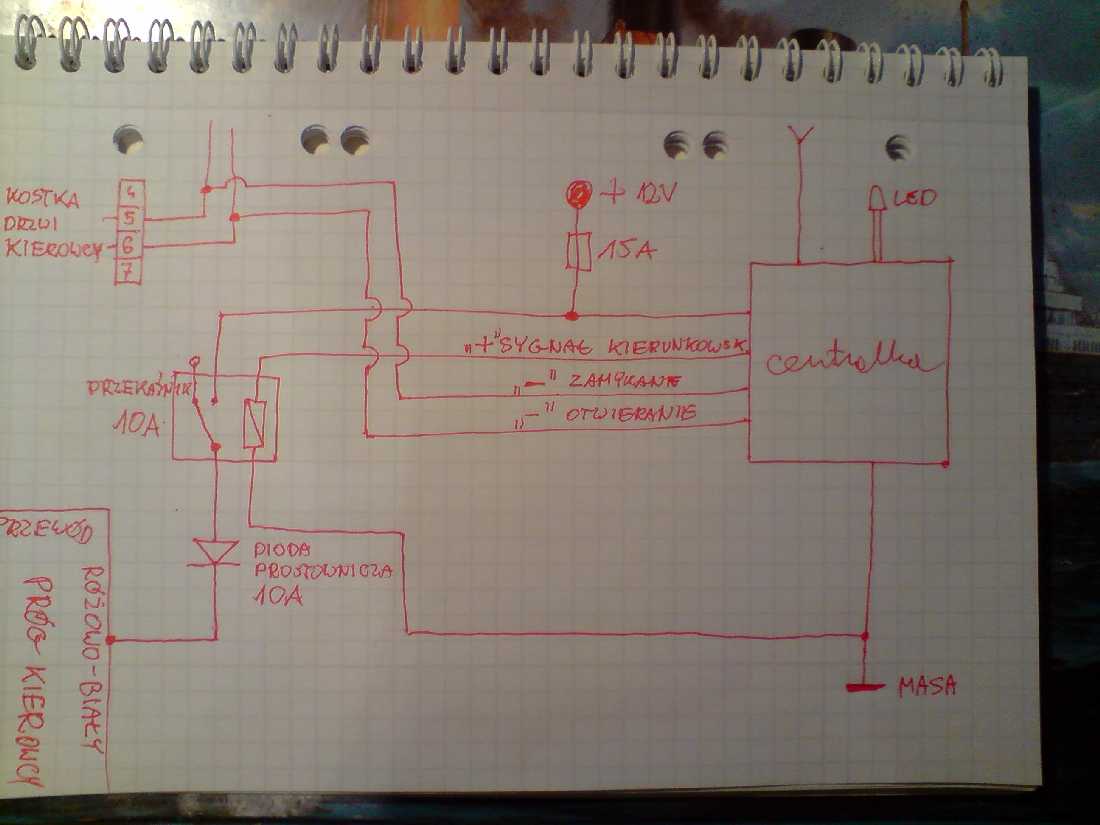 KOSTKA
DRZWI
KIEROWCY
4
5
6
7
+ 12V
15A
LED
„+” SYGNAŁ KIERUNKOWSK.
„-” ZAMYKANIE
„-” OTWIERANIE
centralka
PRZEKAŹNIK
10A
DIODA
PROSTOWNICZA
10A
PRZEWÓD
RÓŻOWO-BIAŁY
PRÓG KIEROWCY
MASA